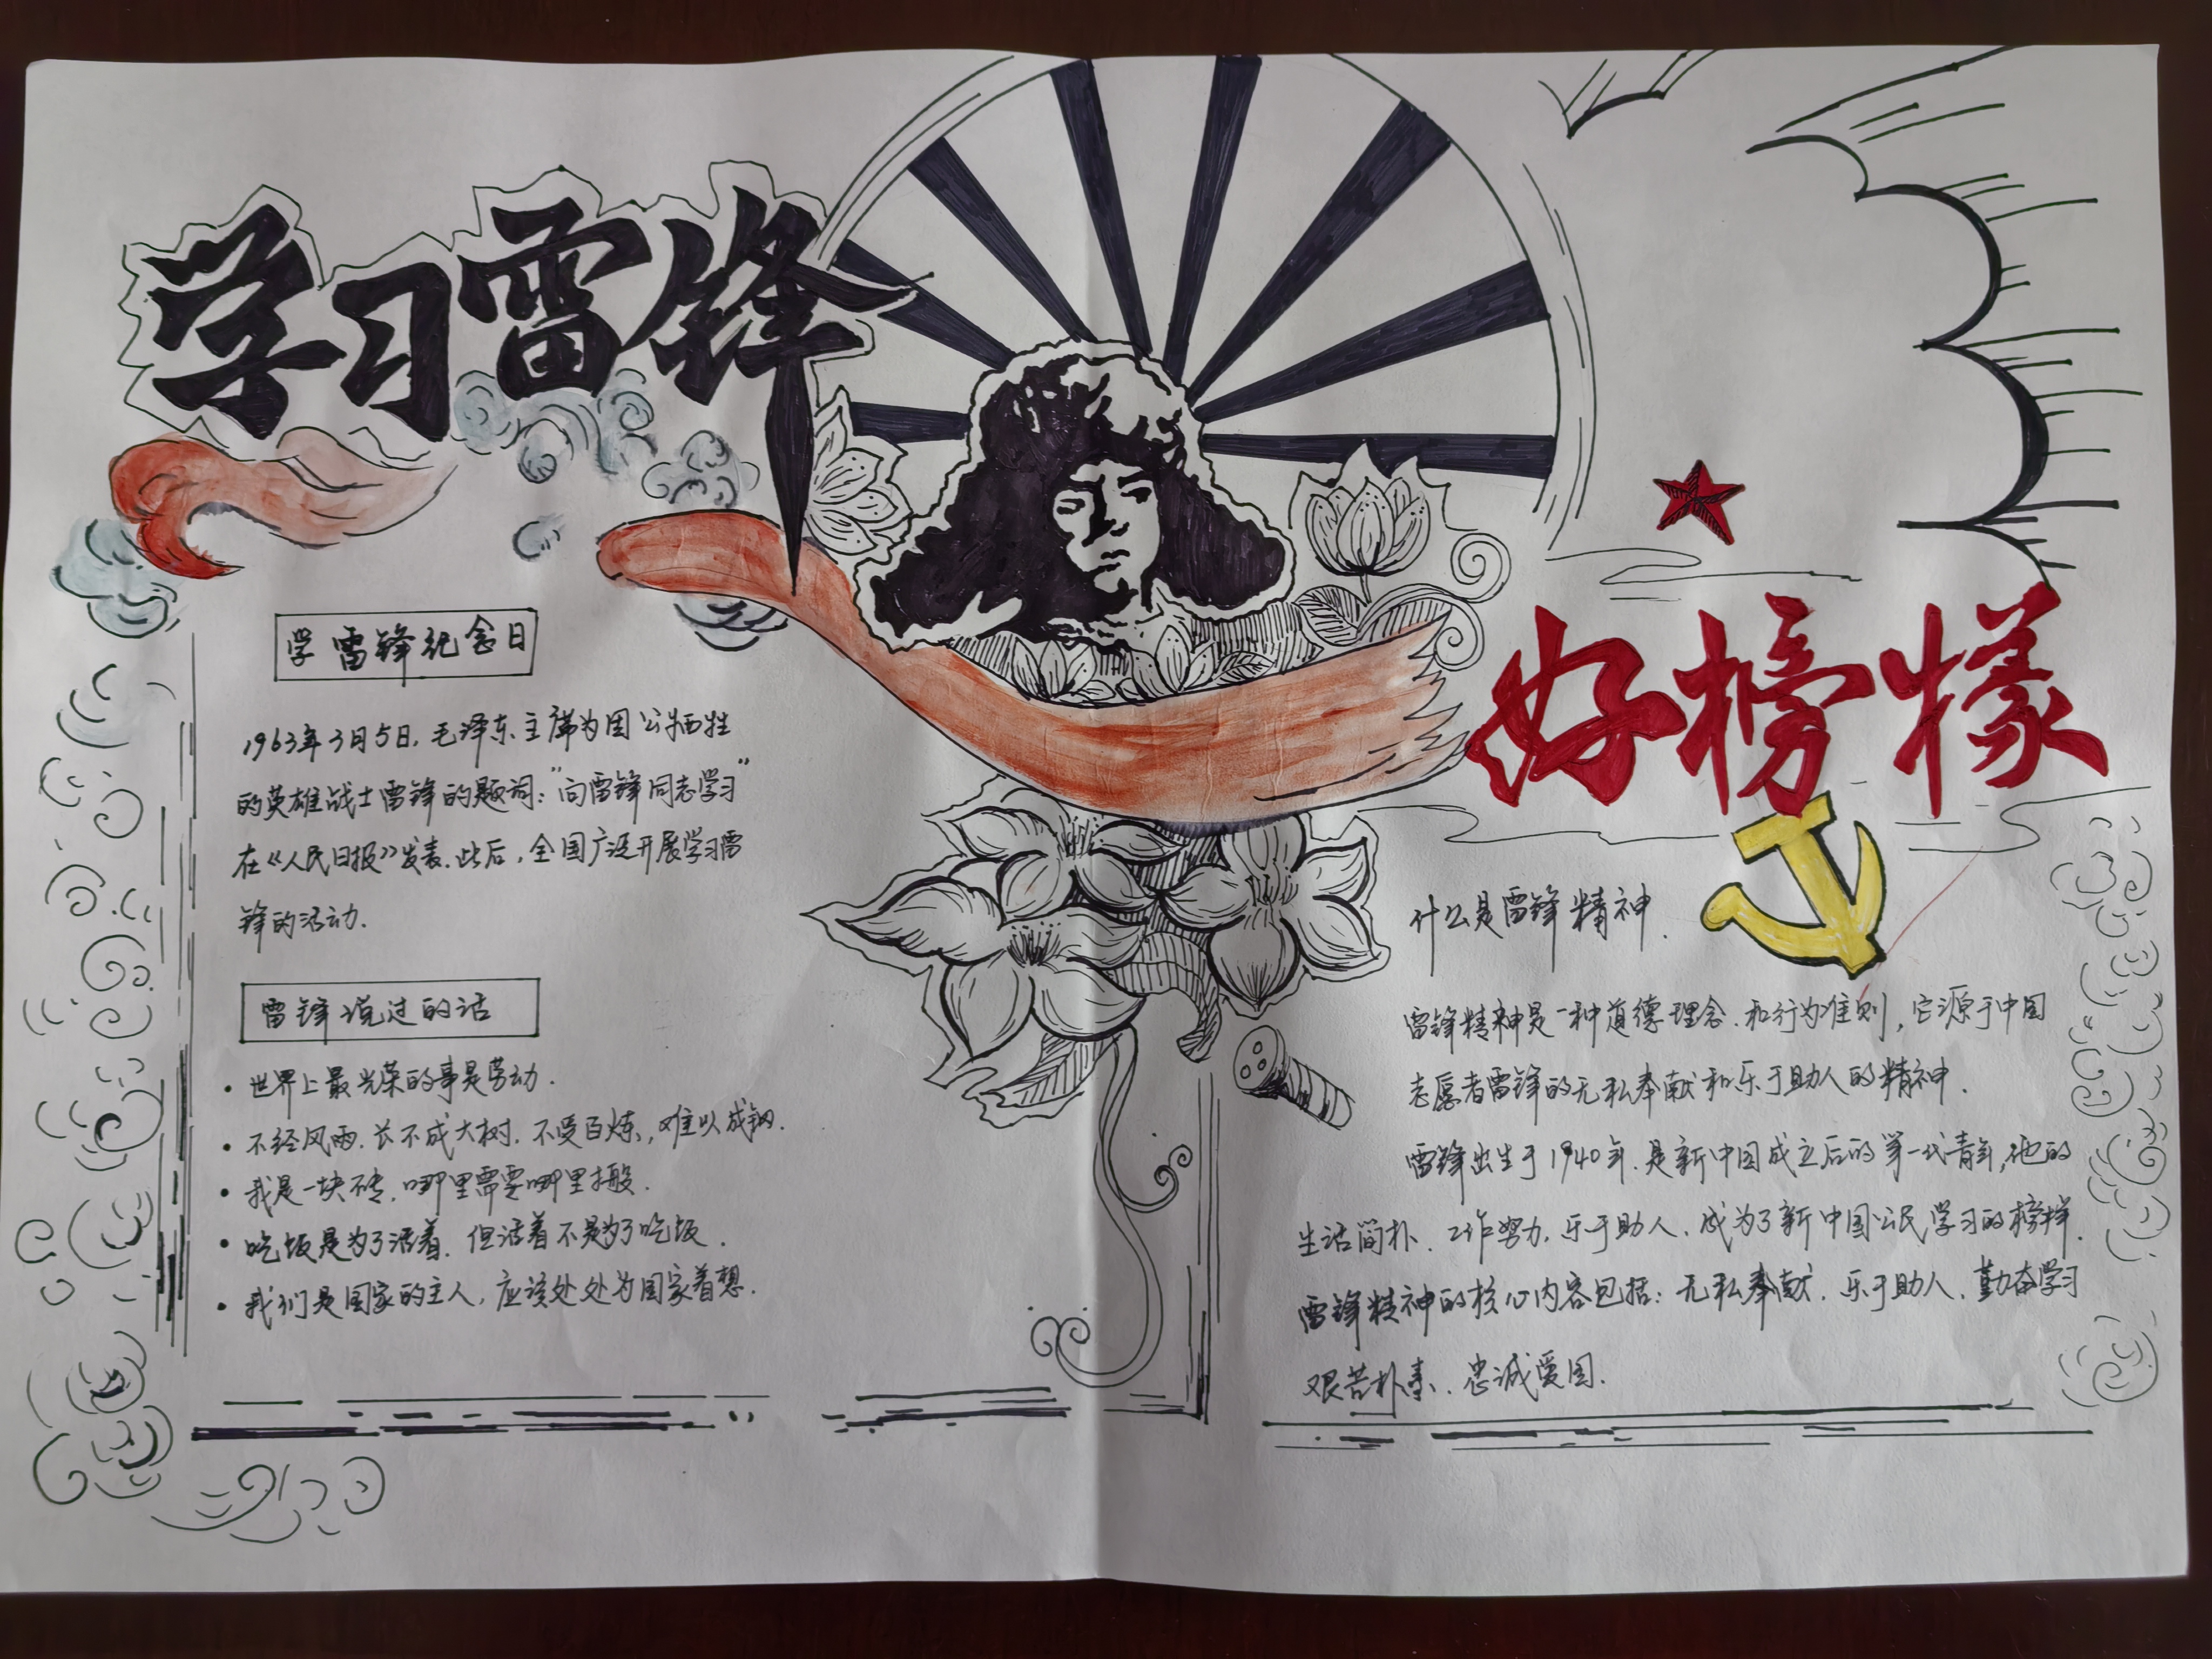 学习雷锋
好榜样
学雷锋纪念日
1963年3月5日,毛泽东主席为因公牺牲
的英雄战士雷锋的题词:“向雷锋同志学习”
在《人民日报》发表.此后,全国广泛开展学习雷
锋的活动.
雷锋说过的话
·世界上最光荣的事是劳动.
·不经风雨.长不成大树.不受百炼,难以成钢.
·我是一块砖,哪里需要哪里搬.
·吃饭是为了活着.但活着不是为了吃饭.
·我们是国家的主人,应该处处为国家着想.
什么是雷锋精神.
雷锋精神是一种道德理念.和行为准则,它源于中国
志愿者雷锋的无私奉献和乐于助人的精神.
雷锋出生于1940年.是新中国成立后的第一代青年,他的
生活简朴、工作努力,乐于助人.成为了新中国公民学习的榜样.
雷锋精神的核心内容包括:无私奉献.乐于助人.勤奋学习
艰苦朴素、忠诚爱国.